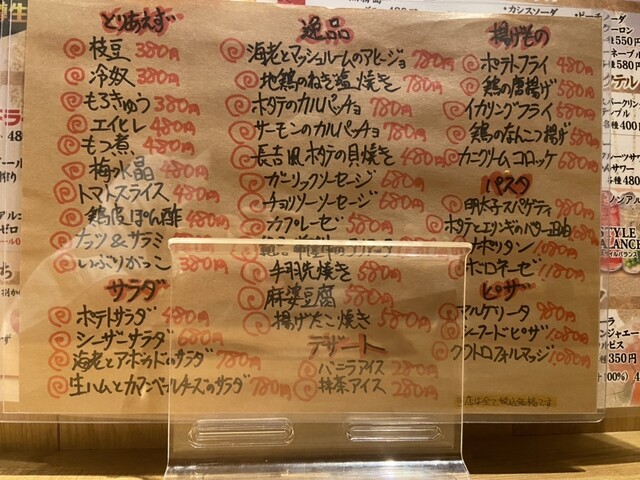 とりあえず
枝豆 380円
冷奴 380円
もろきゅう 380円
エイヒレ 480円
もつ煮 480円
梅水晶 480円
トマトスライス 480円
鶏皮ぽん酢 480円
ナッツ&サラミ
いぶりがっこ 380円
サラダ
ポテトサラダ 480円
シーザーサラダ 680円
海老とアボカドのサラダ 780円
生ハムとカマンベールチーズのサラダ 780円
逸品
海老とマッシュルームのアヒージョ 780円
地鶏のねぎ塩焼き 780円
ホタテのカルパッチョ 780円
サーモンのカルパッチョ 780円
長吉風ホタテの貝焼き 480円
ガーリックソーセージ 680円
チョリソーソーセージ 680円
カプレーゼ 580円
手羽先焼き 580円
麻婆豆腐 580円
揚げたこ焼き 580円
デザート
バニラアイス 280円
抹茶アイス 280円
揚げもの
ポテトフライ 480円
鶏の唐揚げ 580円
イカリングフライ 580円
鶏のなんこつ揚げ 580円
カニクリームコロッケ 680円
パスタ
明太子スパゲティ 980円
ホタテとエリンギのバター醤油
ナポリタン 1080円
ボロネーゼ 1180円
ピザ
マルゲリータ 980円
シーフードピザ 1080円
クワトロフォルマッジ 1080円
当店は全て税込価格です
カシスソーダ